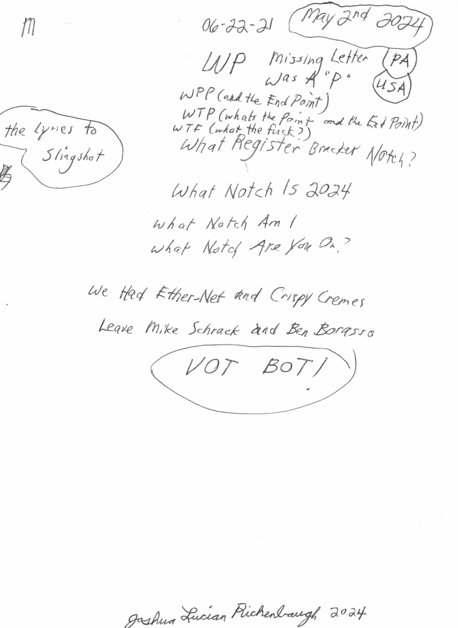 m
06-22-21
May 2nd 2024
WP Missing Letter
Was A "P"
PA
USA
WPP (and the End Point)
WTP (whats the Point and the End Point)
WTF (what the fuck?)
What Register Bracker Notch?
the Lyrics to
Slingshot
What Notch Is 2024
What Notch Am I
What Notch Are You On?
We Had Ether-Net and Crispy Cremes
Leave Mike Schrack and Ben Borasso
VOT BOT!
Joshua Lucian Richenbaugh 2024